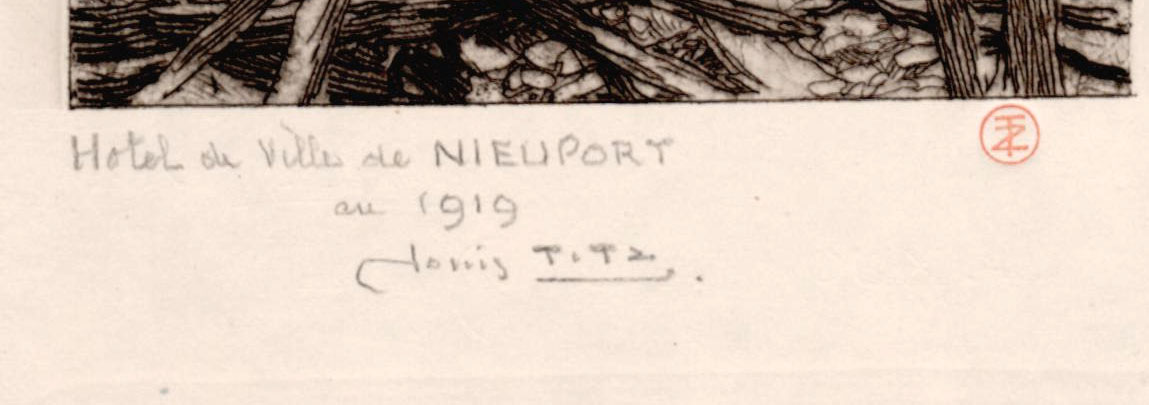 Hotel de Ville de NIEUPORT
en 1919
Louis TITZ.